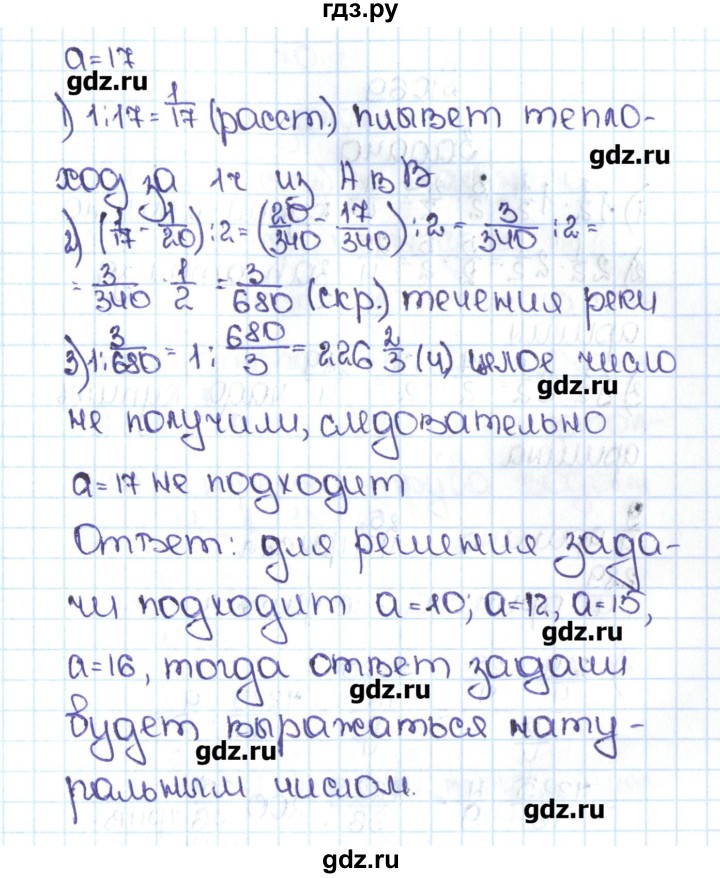 гдз.ру
a=17
gdz.ru
1) 1:17=1/17 (расст.) плывет тепло-
gdz.ru
ход за 1ч из A в B.
2) (1/17 - 1/20):2=(20/340 - 17/340):2=3/340:2=
=3/340 · 1/2 = 3/680 (скр.) течения реки
3) 1:3/680=1:680/3=226 2/3 (ч) целое число
gdz.ru
не получили, следовательно
a=17 не подходит
Ответ: для решения зада-
чи подходит a=10; a=12, a=15,
gdz.ru
a=16, тогда ответ задачи
gdz.ru
будет выражаться нату-
gdz.ru
ральным числом.
gdz.ru
gdz.ru